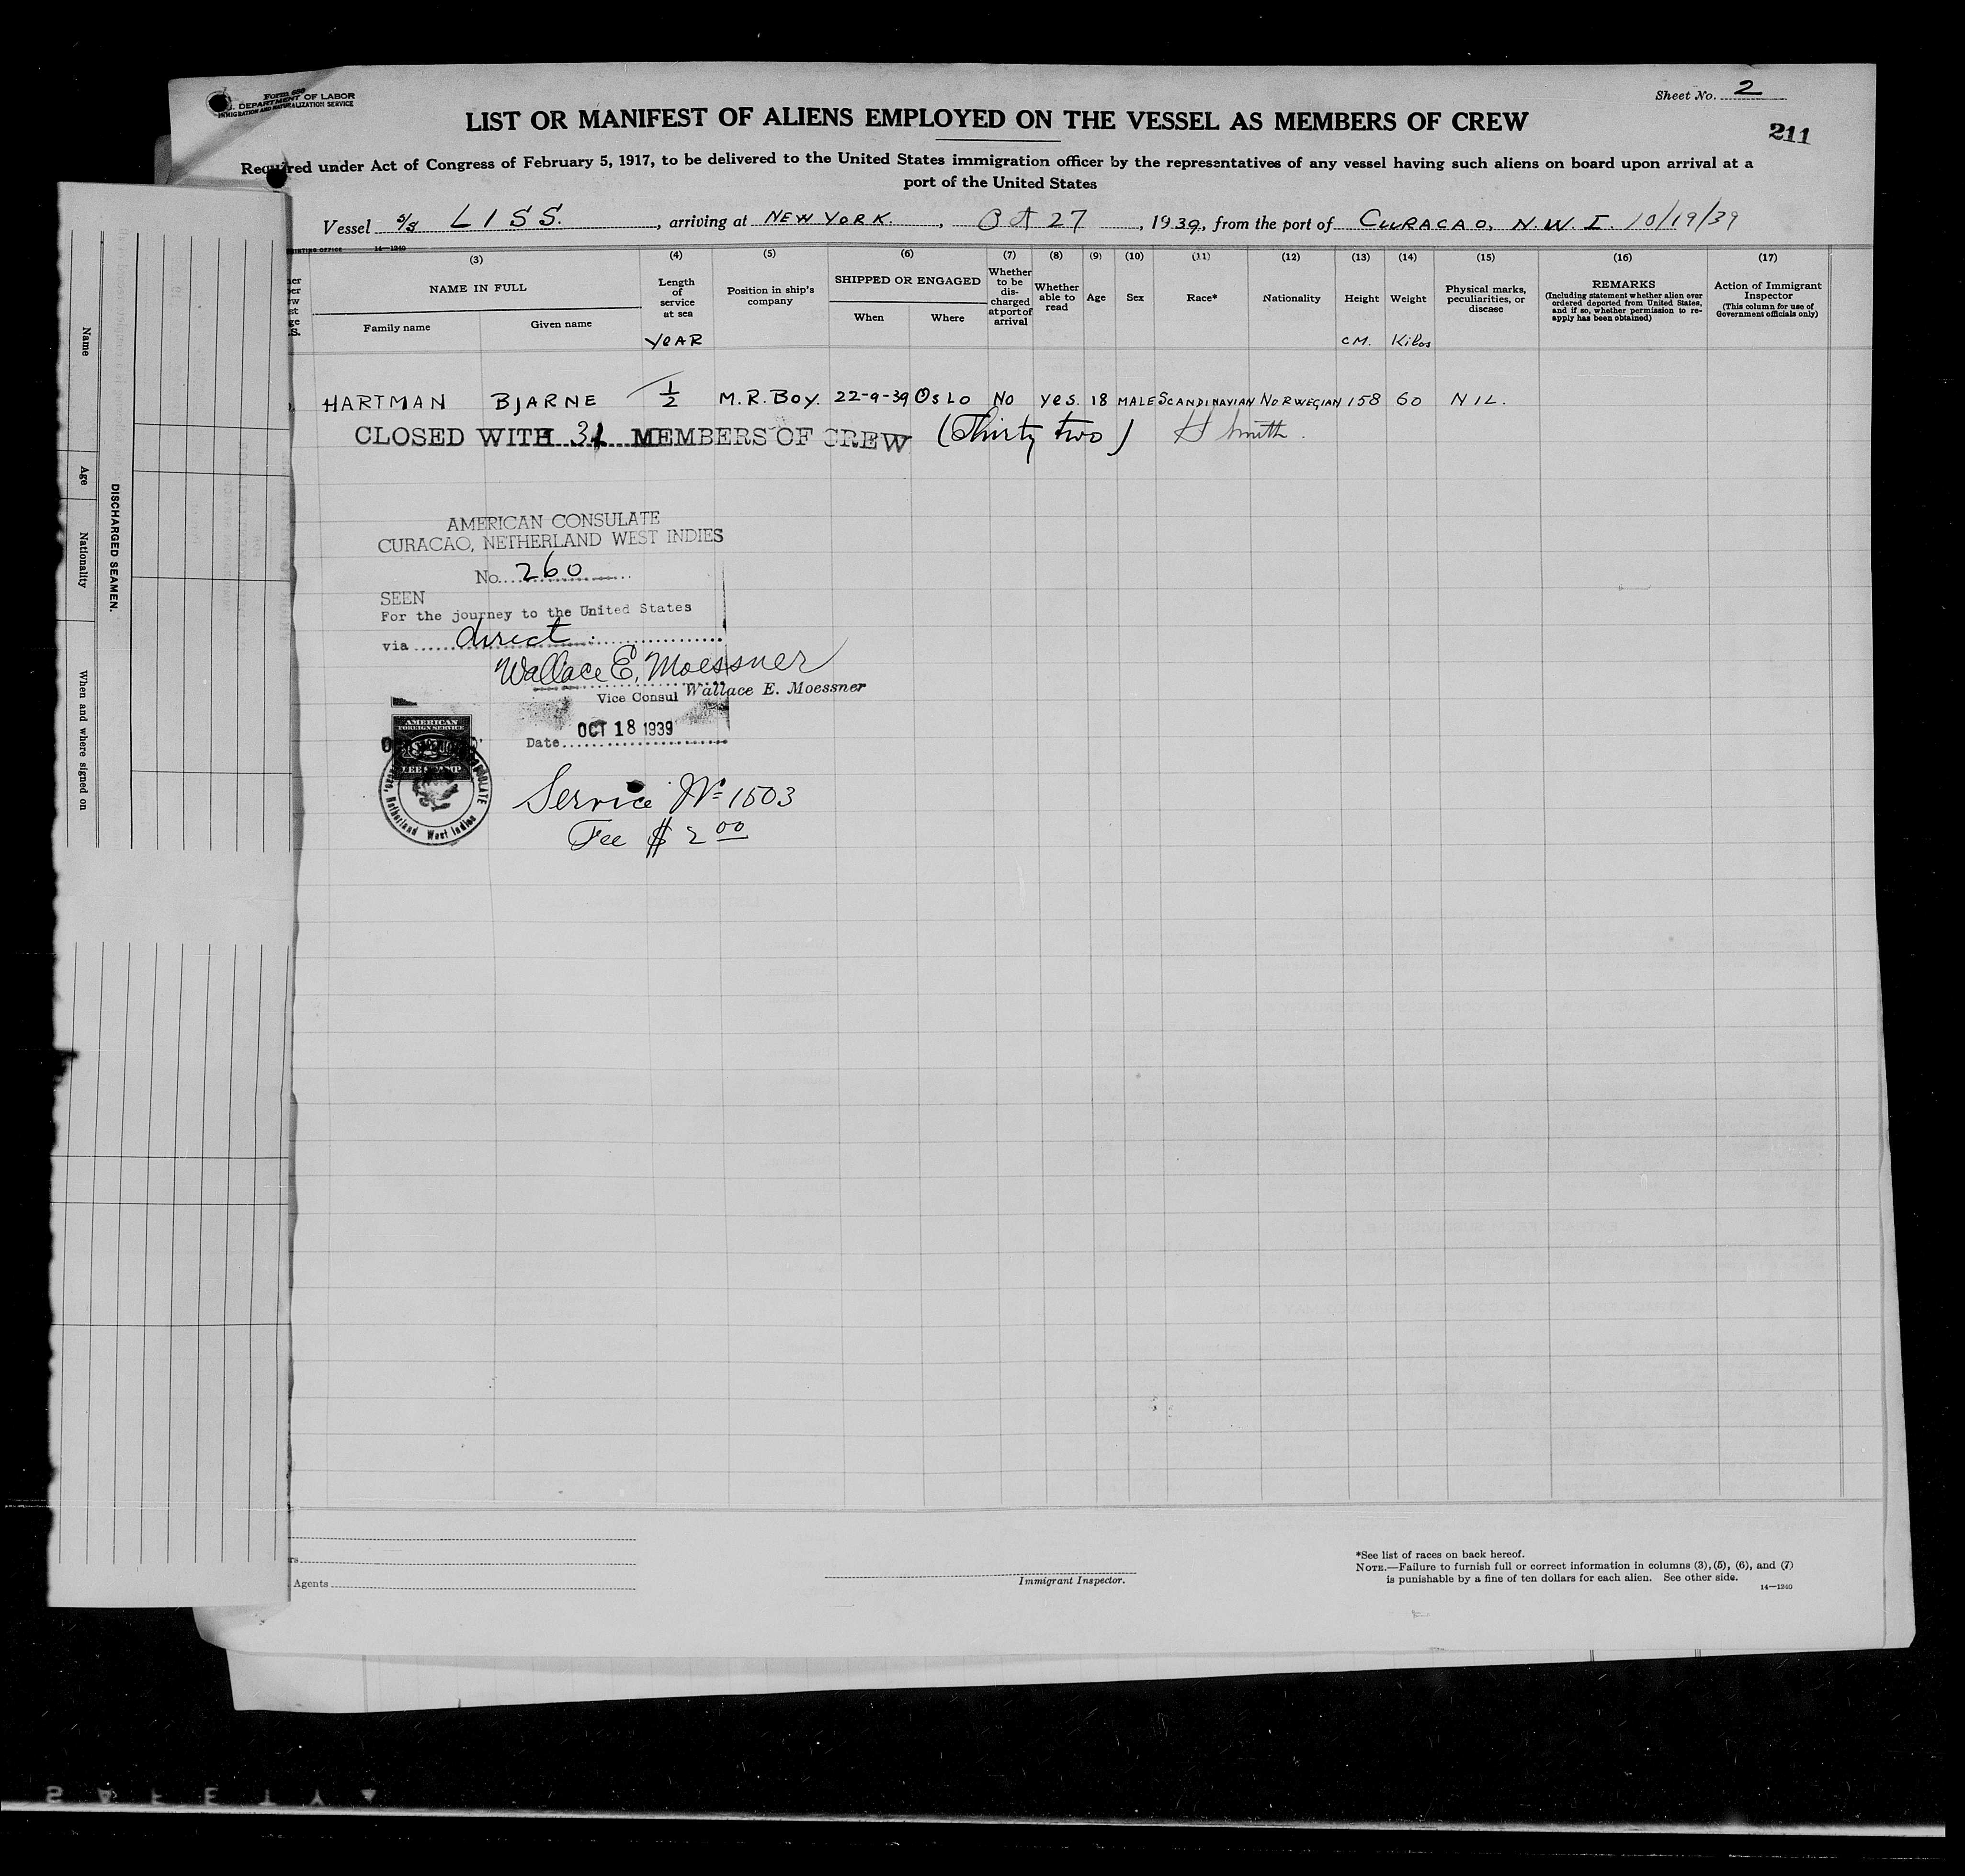 Form 680
U. S. DEPARTMENT OF LABOR
IMMIGRATION AND NATURALIZATION SERVICE
Sheet No. 2
211
LIST OR MANIFEST OF ALIENS EMPLOYED ON THE VESSEL AS MEMBERS OF CREW
Required under Act of Congress of February 5, 1917, to be delivered to the United States immigration officer by the representatives of any vessel having such aliens on board upon arrival at a
port of the United States
Vessel S/S LISS., arriving at NEW YORK., Oct 27, 1939, from the port of CURACAO, N.W.I. 10/19/39
PRINTING OFFICE 14—1240
(3) (4) (5) (6) (7) (8) (9) (10) (11) (12) (13) (14) (15) (16) (17)
NAME IN FULL
Family name
Given name
Length of service at sea
YEAR
Position in ship's company
SHIPPED OR ENGAGED
When
Where
Whether to be discharged at port of arrival
Whether able to read
Age
Sex
Race*
Nationality
Height
CM.
Weight
Kilos
Physical marks, peculiarities, or disease
REMARKS
(Including statement whether alien ever ordered deported from United States, and if so, whether permission to reapply has been obtained)
Action of Immigrant Inspector
(This column for use of Government officials only)
HARTMAN BJARNE 1/2 M.R. BOY. 22-9-39 OSLO NO yes. 18 MALE SCANDINAVIAN NORWEGIAN 158 60 NIL.
CLOSED WITH MEMBERS OF CREW (Thirty two) H Smith.
AMERICAN CONSULATE
CURACAO, NETHERLAND WEST INDIES
No. 260
SEEN
For the journey to the United States
via direct
Wallace E. Moessner
Vice Consul Wallace E. Moessner
Date OCT 18 1939
AMERICAN
FOREIGN SERVICE
FEE STAMP
Netherland West Indies
Service No 1503
Fee $ 2 00
Name
Age
Nationality
When and where signed on
DISCHARGED SEAMEN.
Agents
Immigrant Inspector.
*See list of races on back hereof.
NOTE.—Failure to furnish full or correct information in columns (3), (5), (6), and (7)
is punishable by a fine of ten dollars for each alien. See other side.
14—1240
SAFETY